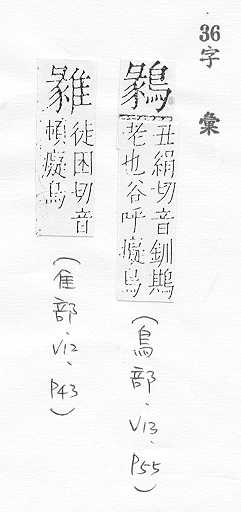 36 字彙
鶨
丑絹切音釧鶀
老也谷呼癡鳥
(鳥部、V13、P55)
徒困切音
頓癡鳥
(隹部、V12、P43)